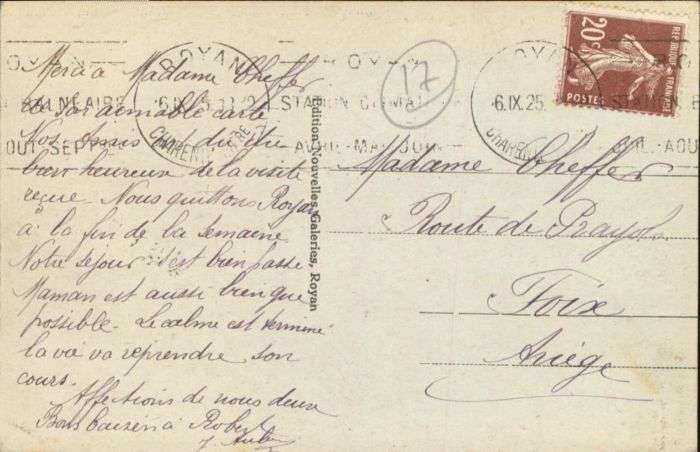 Merci à Madame Cheffer
de son aimable carte
Nos Assis ont du être
bien heureux de la visite
reçue. Nous quittons Royan
à la fin de la semaine
Notre séjour s'est bien passé
Maman est aussi bien que
possible. Le calme est terminé
la vie va reprendre son
cours.
Affections de nous deux
Bons baisers à Robert
Edition Nouvelles Galeries, Royan
17
ROYAN
6.IX.25
STATION CLIMAT
BALNÉAIRE
AVRIL-MAI-JUIN
JUIL-AOUT-SEPT
ROYAN
6.IX.25
20c
REPUBLIQUE FRANÇAISE
POSTES
Madame Cheffer
Route de Prayols
Foix
Ariège